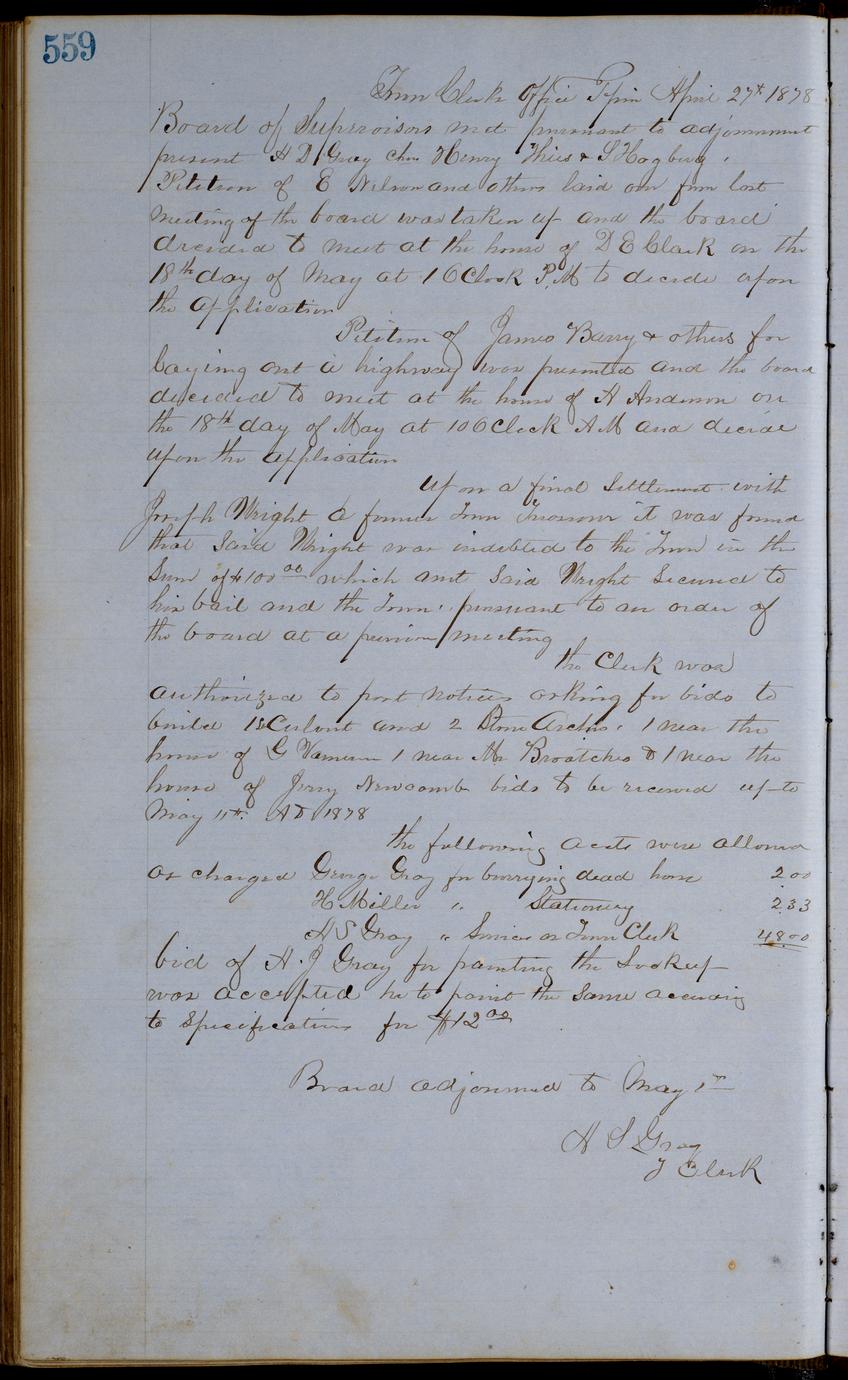 559
Town Clerk Office Pepin April 27th 1878
Board of Supervisors met pursuant to adjournment
present H D Gray chm Henry Thies & S Hogberg.
Petition of E Nelson and others laid over from last
meeting of the board was taken up and the board
decided to meet at the house of D E Clark on the
18th day of May at 1 OClock P.M to decide upon
the application
Petition of James Barry & others for
laying out a highway was presented and the board
decided to meet at the house of A Anderson on
the 18th day of May at 10 OClock AM and decide
upon the application
upon a final Settlement with
Joseph Wright a former Town Treasurer it was found
that Said Wright was indebted to the Town in the
Sum of $100 00 which amt Said Wright Secured to
his bail and the Town pursuant to an order of
the board at a previous meeting
the Clerk was
authorized to post notices asking for bids to
build Culvert and 2 Stone Arches. 1 near the
house of G 1 near Mr Broatches & 1 near the
house of Jerry Newcomb bids to be received up to
May 11th. AD 1878
the following accts were allowed
as charged George Gray for burrying dead horse 2 00
H Miller " Stationery 2.33
H S Gray " Services as Town Clerk 48.00
bid of H. J Gray for painting the Lockup
was accepted he to paint the Same according
to Specifications for $12 00
Board adjourned to May 1st
H S Gray
T Clerk